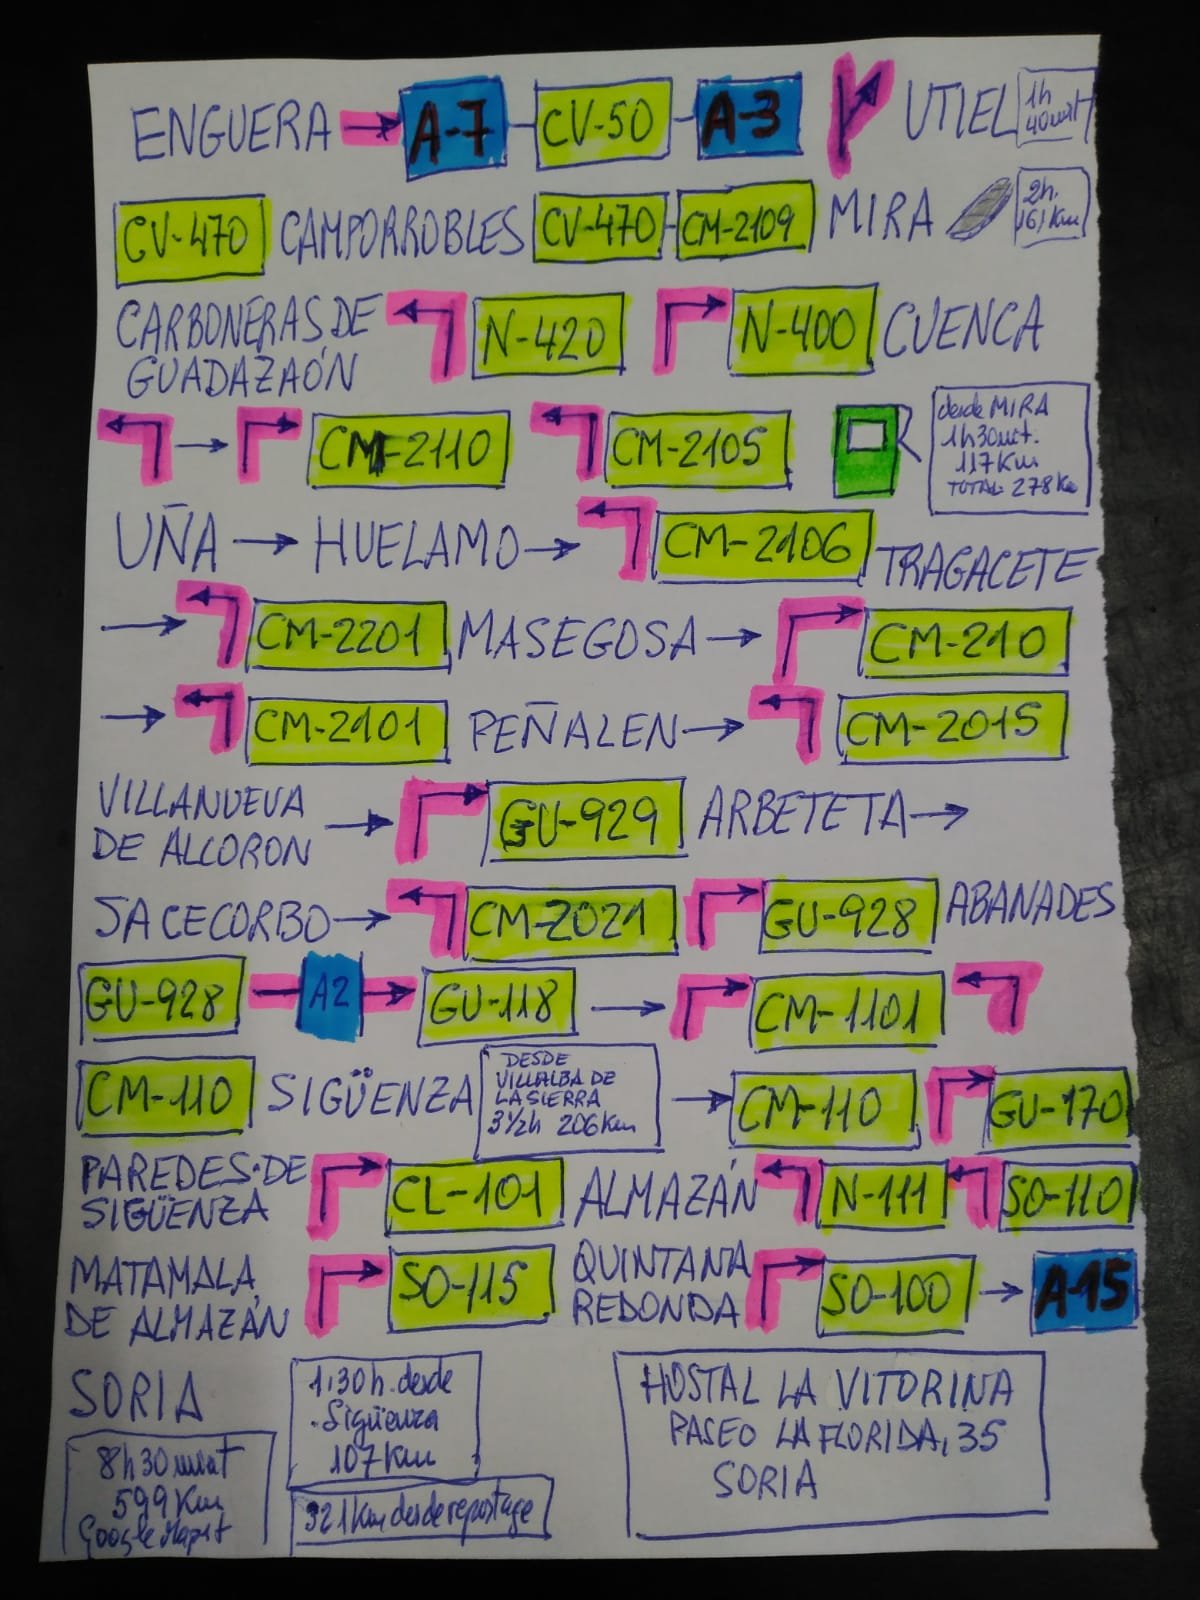 ENGUERA → A-7 - CV-50 - A-3 UTIEL 1h 40mnt
CV-470 CAMPORROBLES CV-470 - CM-2109 MIRA 2h. 161Km
CARBONERAS DE GUADAZAÓN N-420 N-400 CUENCA
→ CM-2110 CM-2105
desde MIRA
1h30mt.
117Km
TOTAL: 278Km
UÑA → HUELAMO → CM-2106 TRAGACETE
→ CM-2201 MASEGOSA → CM-210
→ CM-2101 PEÑALEN → CM-2015
VILLANUEVA DE ALCORON → GU-929 ARBETETA →
SACECORBO → CM-2021 GU-928 ABANADES
GU-928 - A2 → GU-118 → CM-1101
CM-110 SIGÜENZA
DESDE
VILLALBA DE
LA SIERRA
3½h 206Km
→ CM-110 GU-170
PAREDES DE SIGÜENZA CL-101 ALMAZÁN N-111 SO-110
MATAMALA DE ALMAZÁN SO-115 QUINTANA REDONDA SO-100 → A-15
SORIA
8h30
599Km
Google Maps
1:30h. desde
Sigüenza
107Km
321Km desde repostage
HOSTAL LA VITORINA
PASEO LA FLORIDA, 35
SORIA